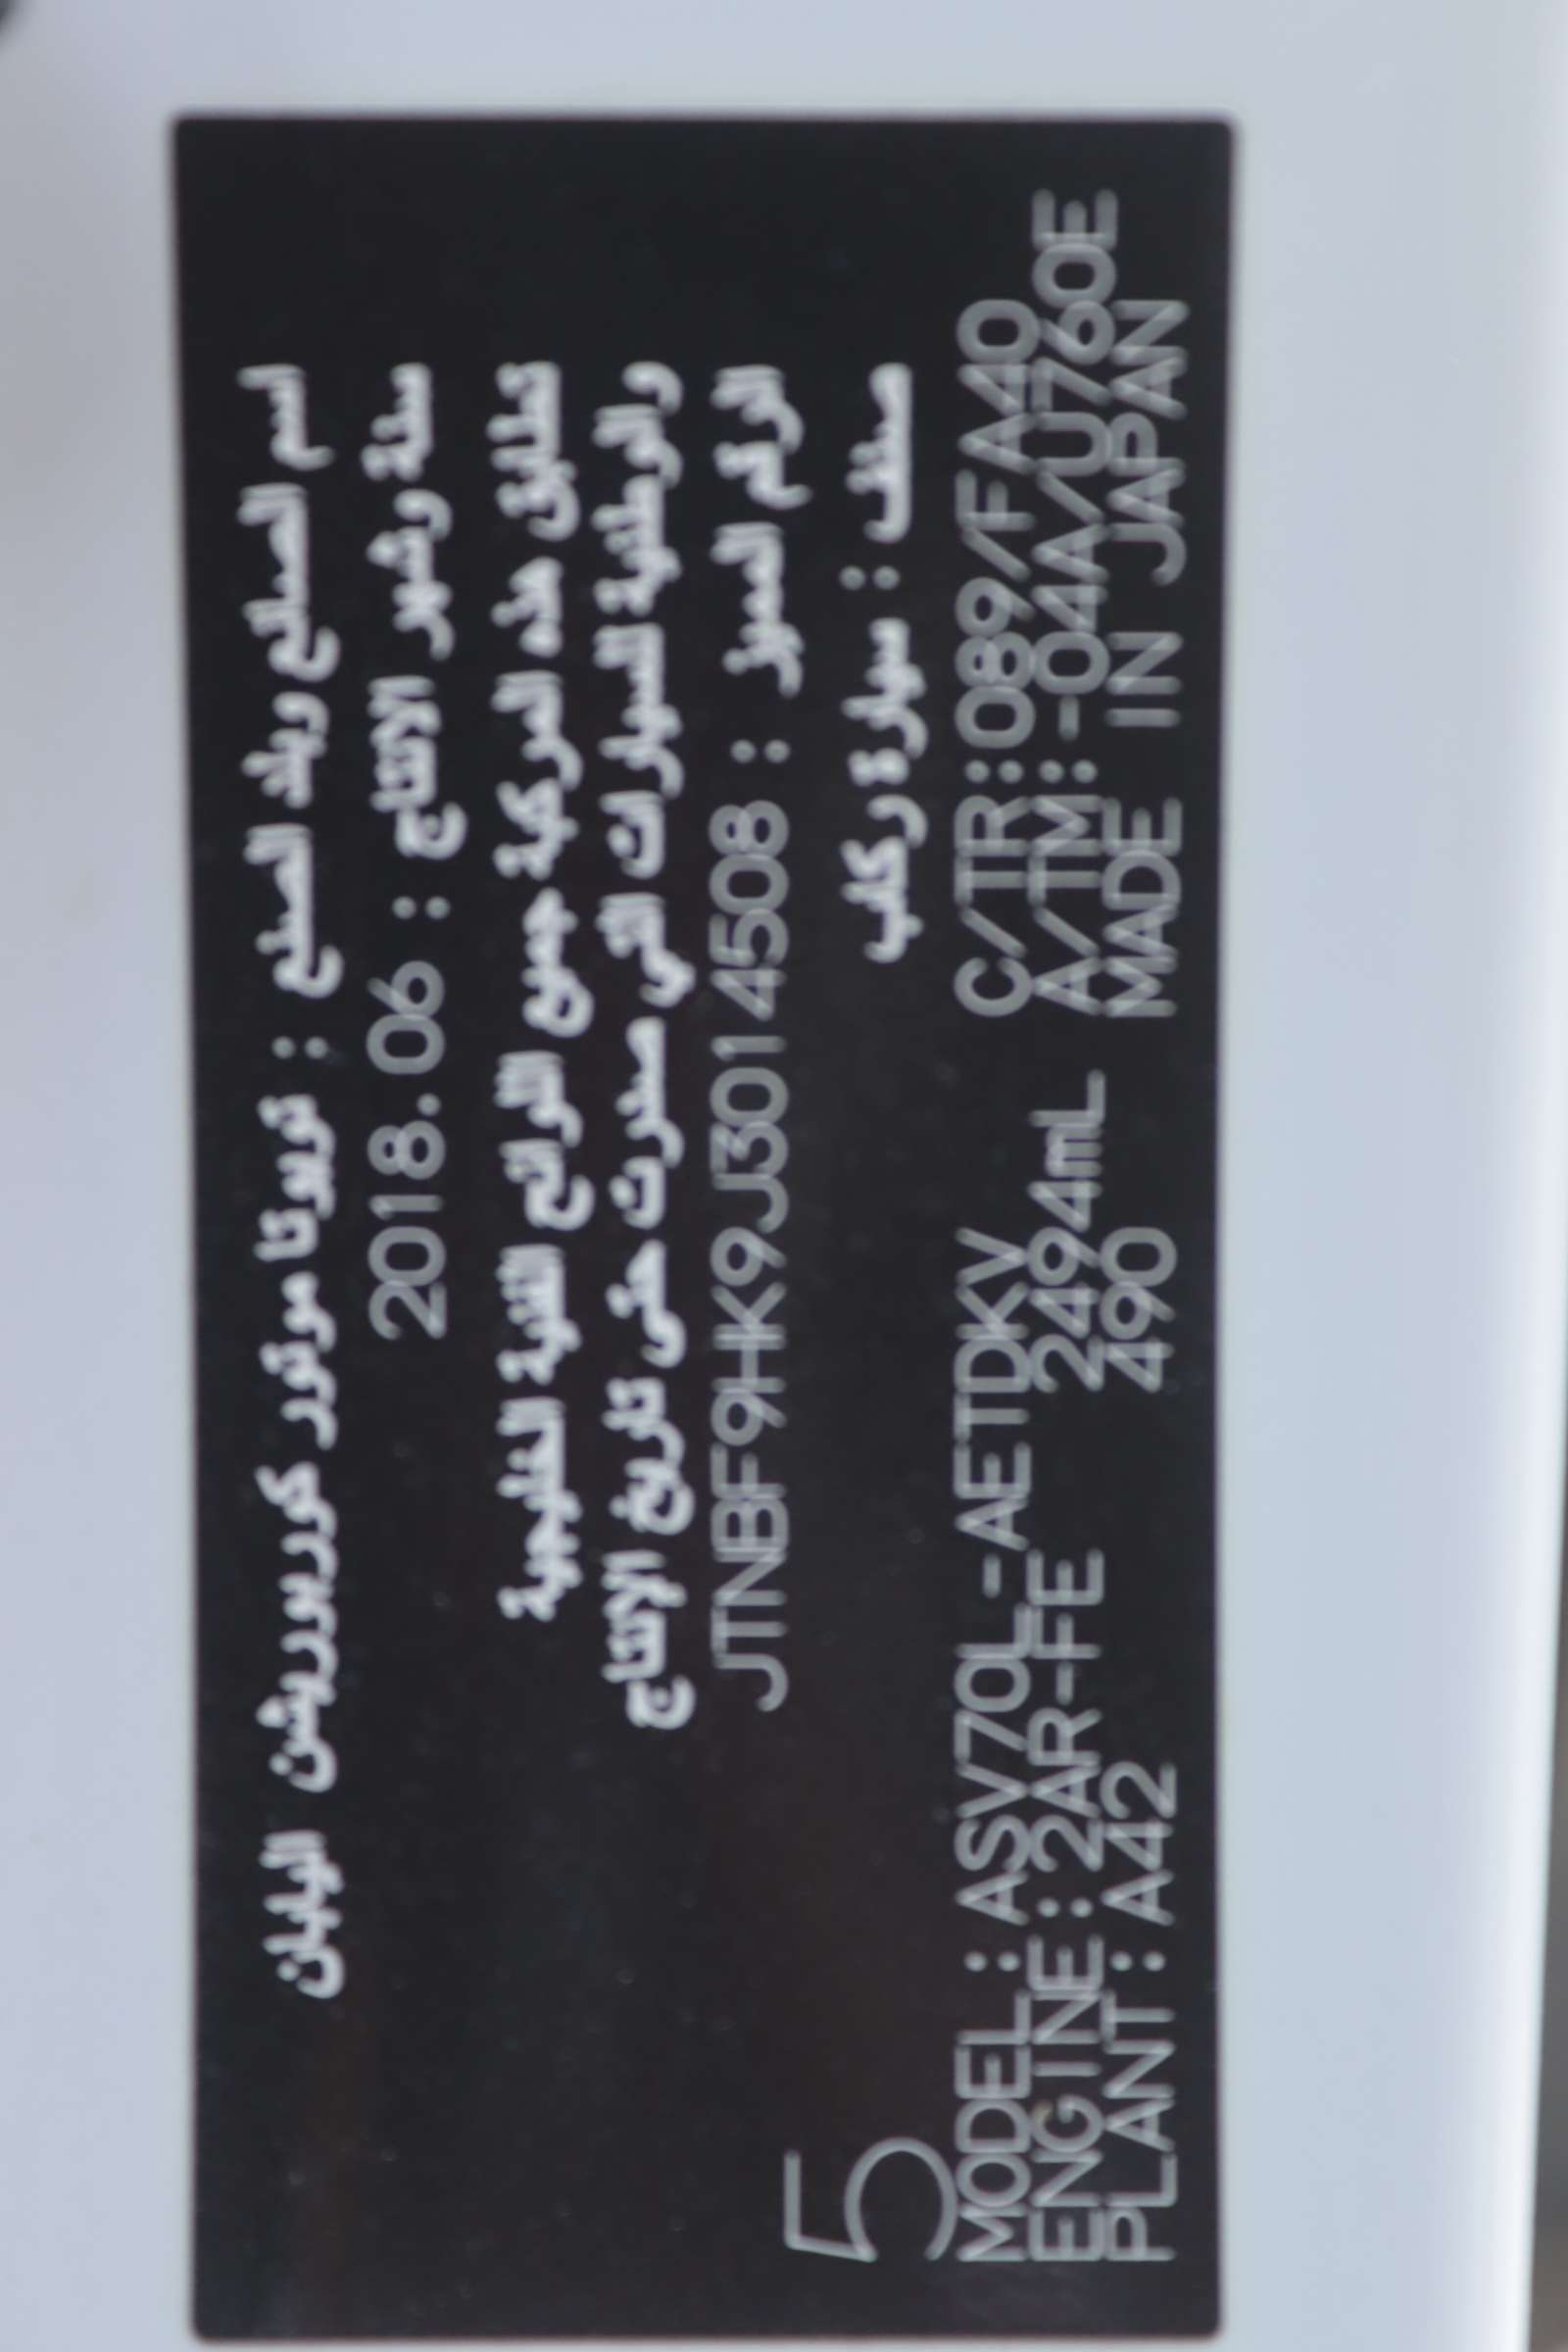 اسم الصانع وبلد الصنع : تويوتا موتور كوربوريشن اليابان
سنة وشهر الانتاج : 2018.06
تطابق هذه المركبة جميع اللوائح الفنية الخليجية
والوطنية للسيارات التي صدرت حتى تاريخ الإنتاج
الرقم المميز : JTNBF9HK9J3014508
صنف : سيارة ركاب
5
MODEL : ASV70L-AETDKV C/TR:089/FA40
ENGINE:2AR-FE 2494mL A/TM:-04A/U760E
PLANT:A42 490 MADE IN JAPAN